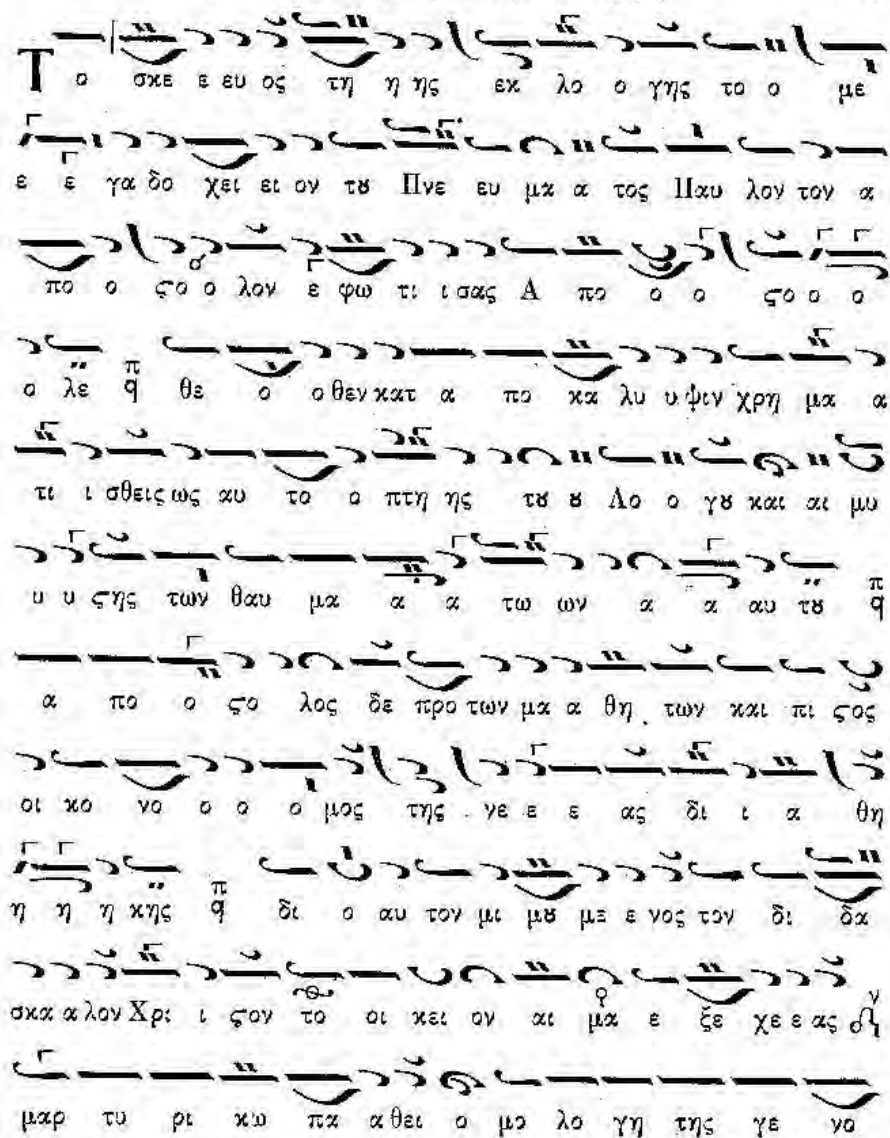 Το σκε ε ευ ος τη η ης εκ λο ο γης το ο με
ε ε γα δο χει ει ον τȣ Πνε ευ μα α τος Παυ λον τον α
πο ο ϛο ο λον ε φω τι ι σας Α πο ο ο ϛο ο ο
ο λε π q θε ο ο θεν κατ α πο κα λυ υ ψιν χρη μα α
τι ι σθεις ως αυ το ο πτη ης τȣ ȣ Λο ο γȣ και αι μυ
υ υ ϛης των θαυ μα α α τω ων α α αυ τȣ π q
α πο ο ϛο λος δε προ των μα α θη των και πι ϛος
οι κο νο ο ο ο μος της γε ε ε ας δι ι α θη
η η η κης π q δι ο αυ τον μι μȣ με ε νος τον δι δα
σκα α λον Χρι ι ϛον το οι κει ον αι μα ε ξε χε ε ας ν
μαρ τυ ρι κω πα α θει ο μο λο γη της γε νο